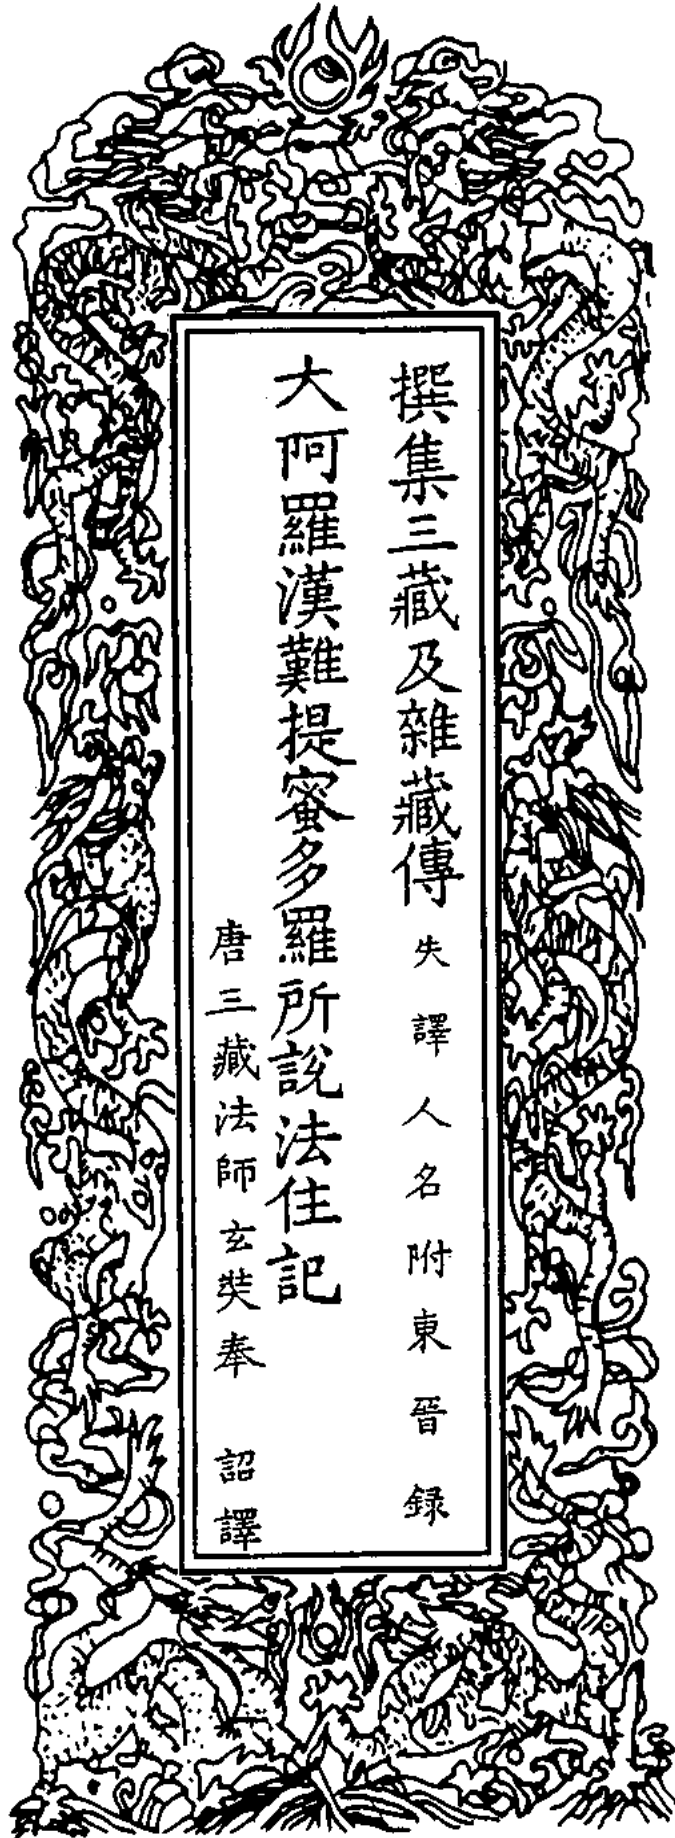 撰集三藏及雜藏傳失譯人名附東晉録
大阿羅漢難提蜜多羅所說法住記
唐三藏法師玄奘奉　詔譯